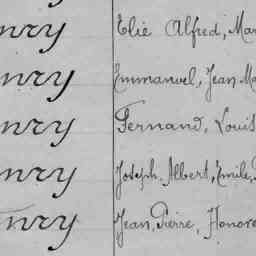 nry Elie Alfred, Mar
nry Emmanuel, Jean Ma
nry Fernand, Louis
nry Joseph, Albert, Emile,
nry Jean, Pierre, Honoré